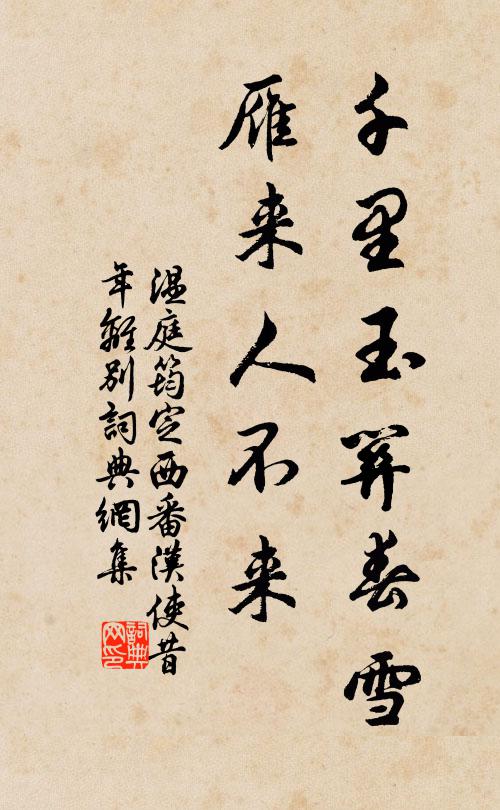 千里玉關春雪
雁来人不来
溫庭筠定西番漢使昔
年離別詞典網集
詞典
网印